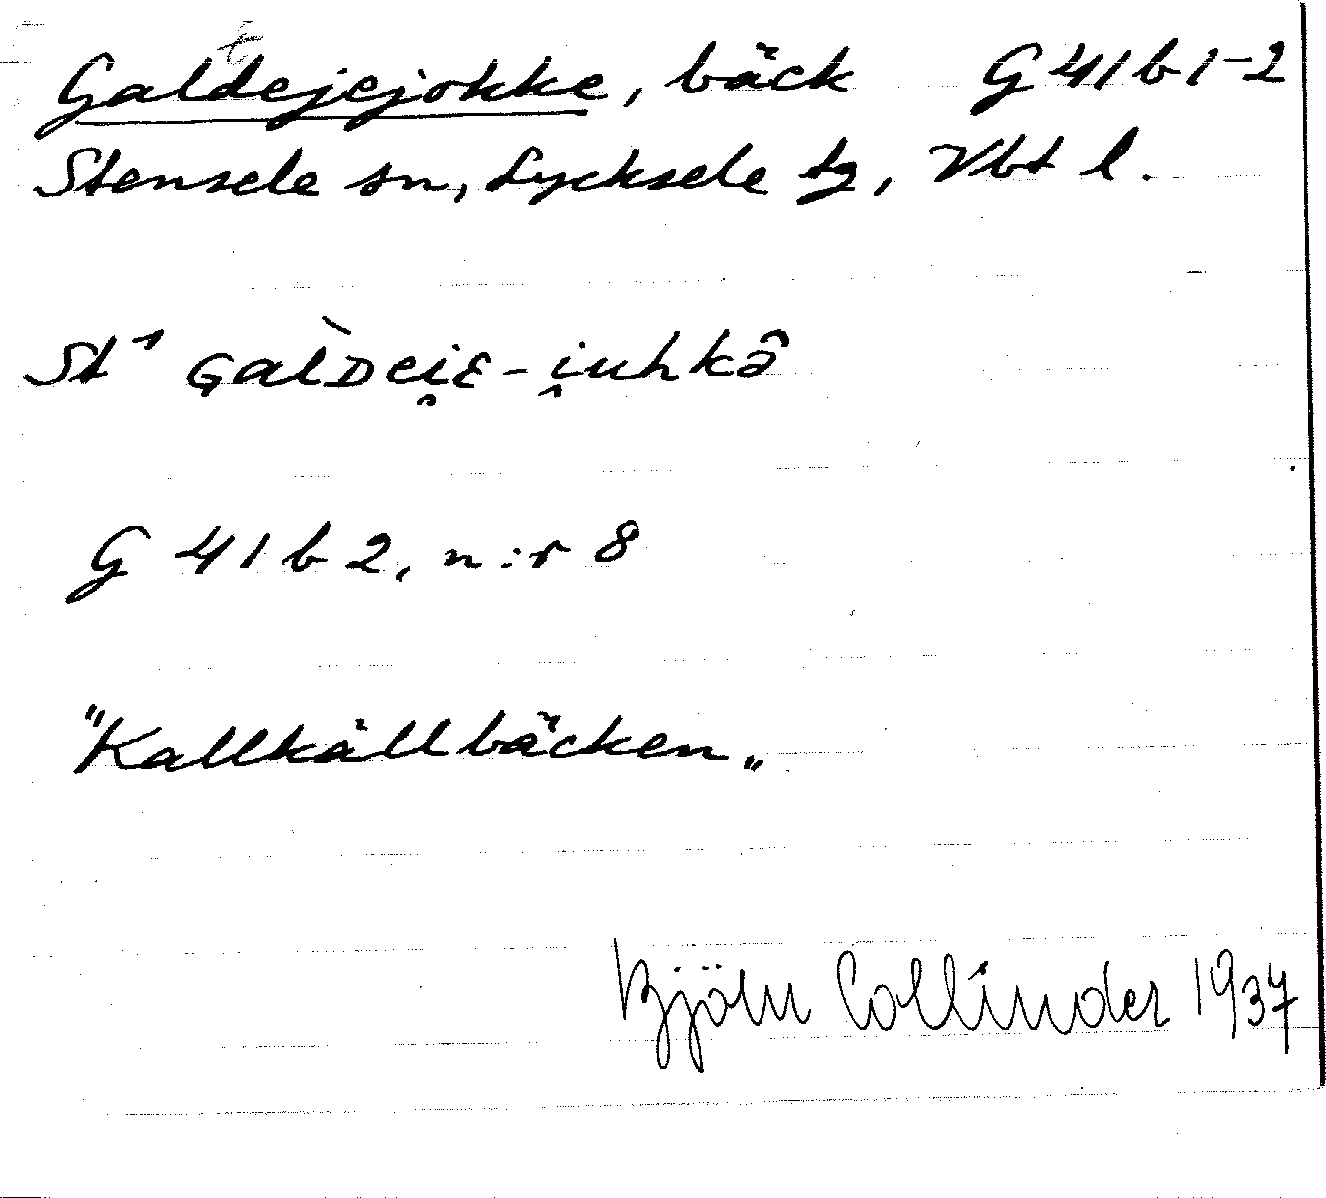 Galdejejokke, bäck G41b1-2
t
Stensele sn, Lycksele tg, Vbt l.
St¹ GalDei̯E-i̯uhkə̂
G 41 b 2, n:r 8
"Kallkällbäcken"
Björn Collinder 1937